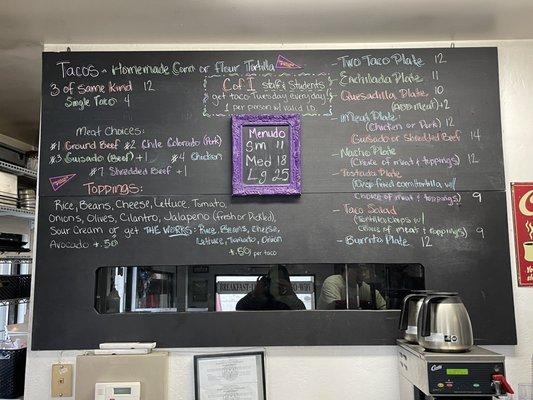 Tacos - Homemade Corn or Flour Tortilla
3 of same kind 12
Single Taco 4
CofI staff & students
get taco Tuesday everyday!
1 per person w/ valid ID.
Meat Choices:
#1 Ground Beef #2 Chile Colorado (Pork)
#3 Guisado (Beef) +1 #4 Chicken
#7 Shredded Beef +1
Toppings:
Rice, Beans, Cheese, Lettuce, Tomato,
Onions, Olives, Cilantro, Jalapeño (fresh or Pickled),
Sour Cream or get THE WORKS: Rice, Beans, Cheese,
Lettuce, Tomato, Onion
Avocado +.50
+.50 per taco
Menudo
Sm 11
Med 18
Lg 25
- Two Taco Plate 12
- Enchilada Plate 11
- Quesadilla Plate 10
(add meat) +2
(Chicken or Pork) 12
Guisado or Shredded Beef 14
- Nacho Plate
(Choice of meat & toppings) 12
- Tostada Plate
(Deep fried corn tortilla w/
Choice of meat & toppings) 9
- Taco Salad
(Tortilla Chips w/
choice of meat & toppings) 9
- Burrito Plate 12
Curtis